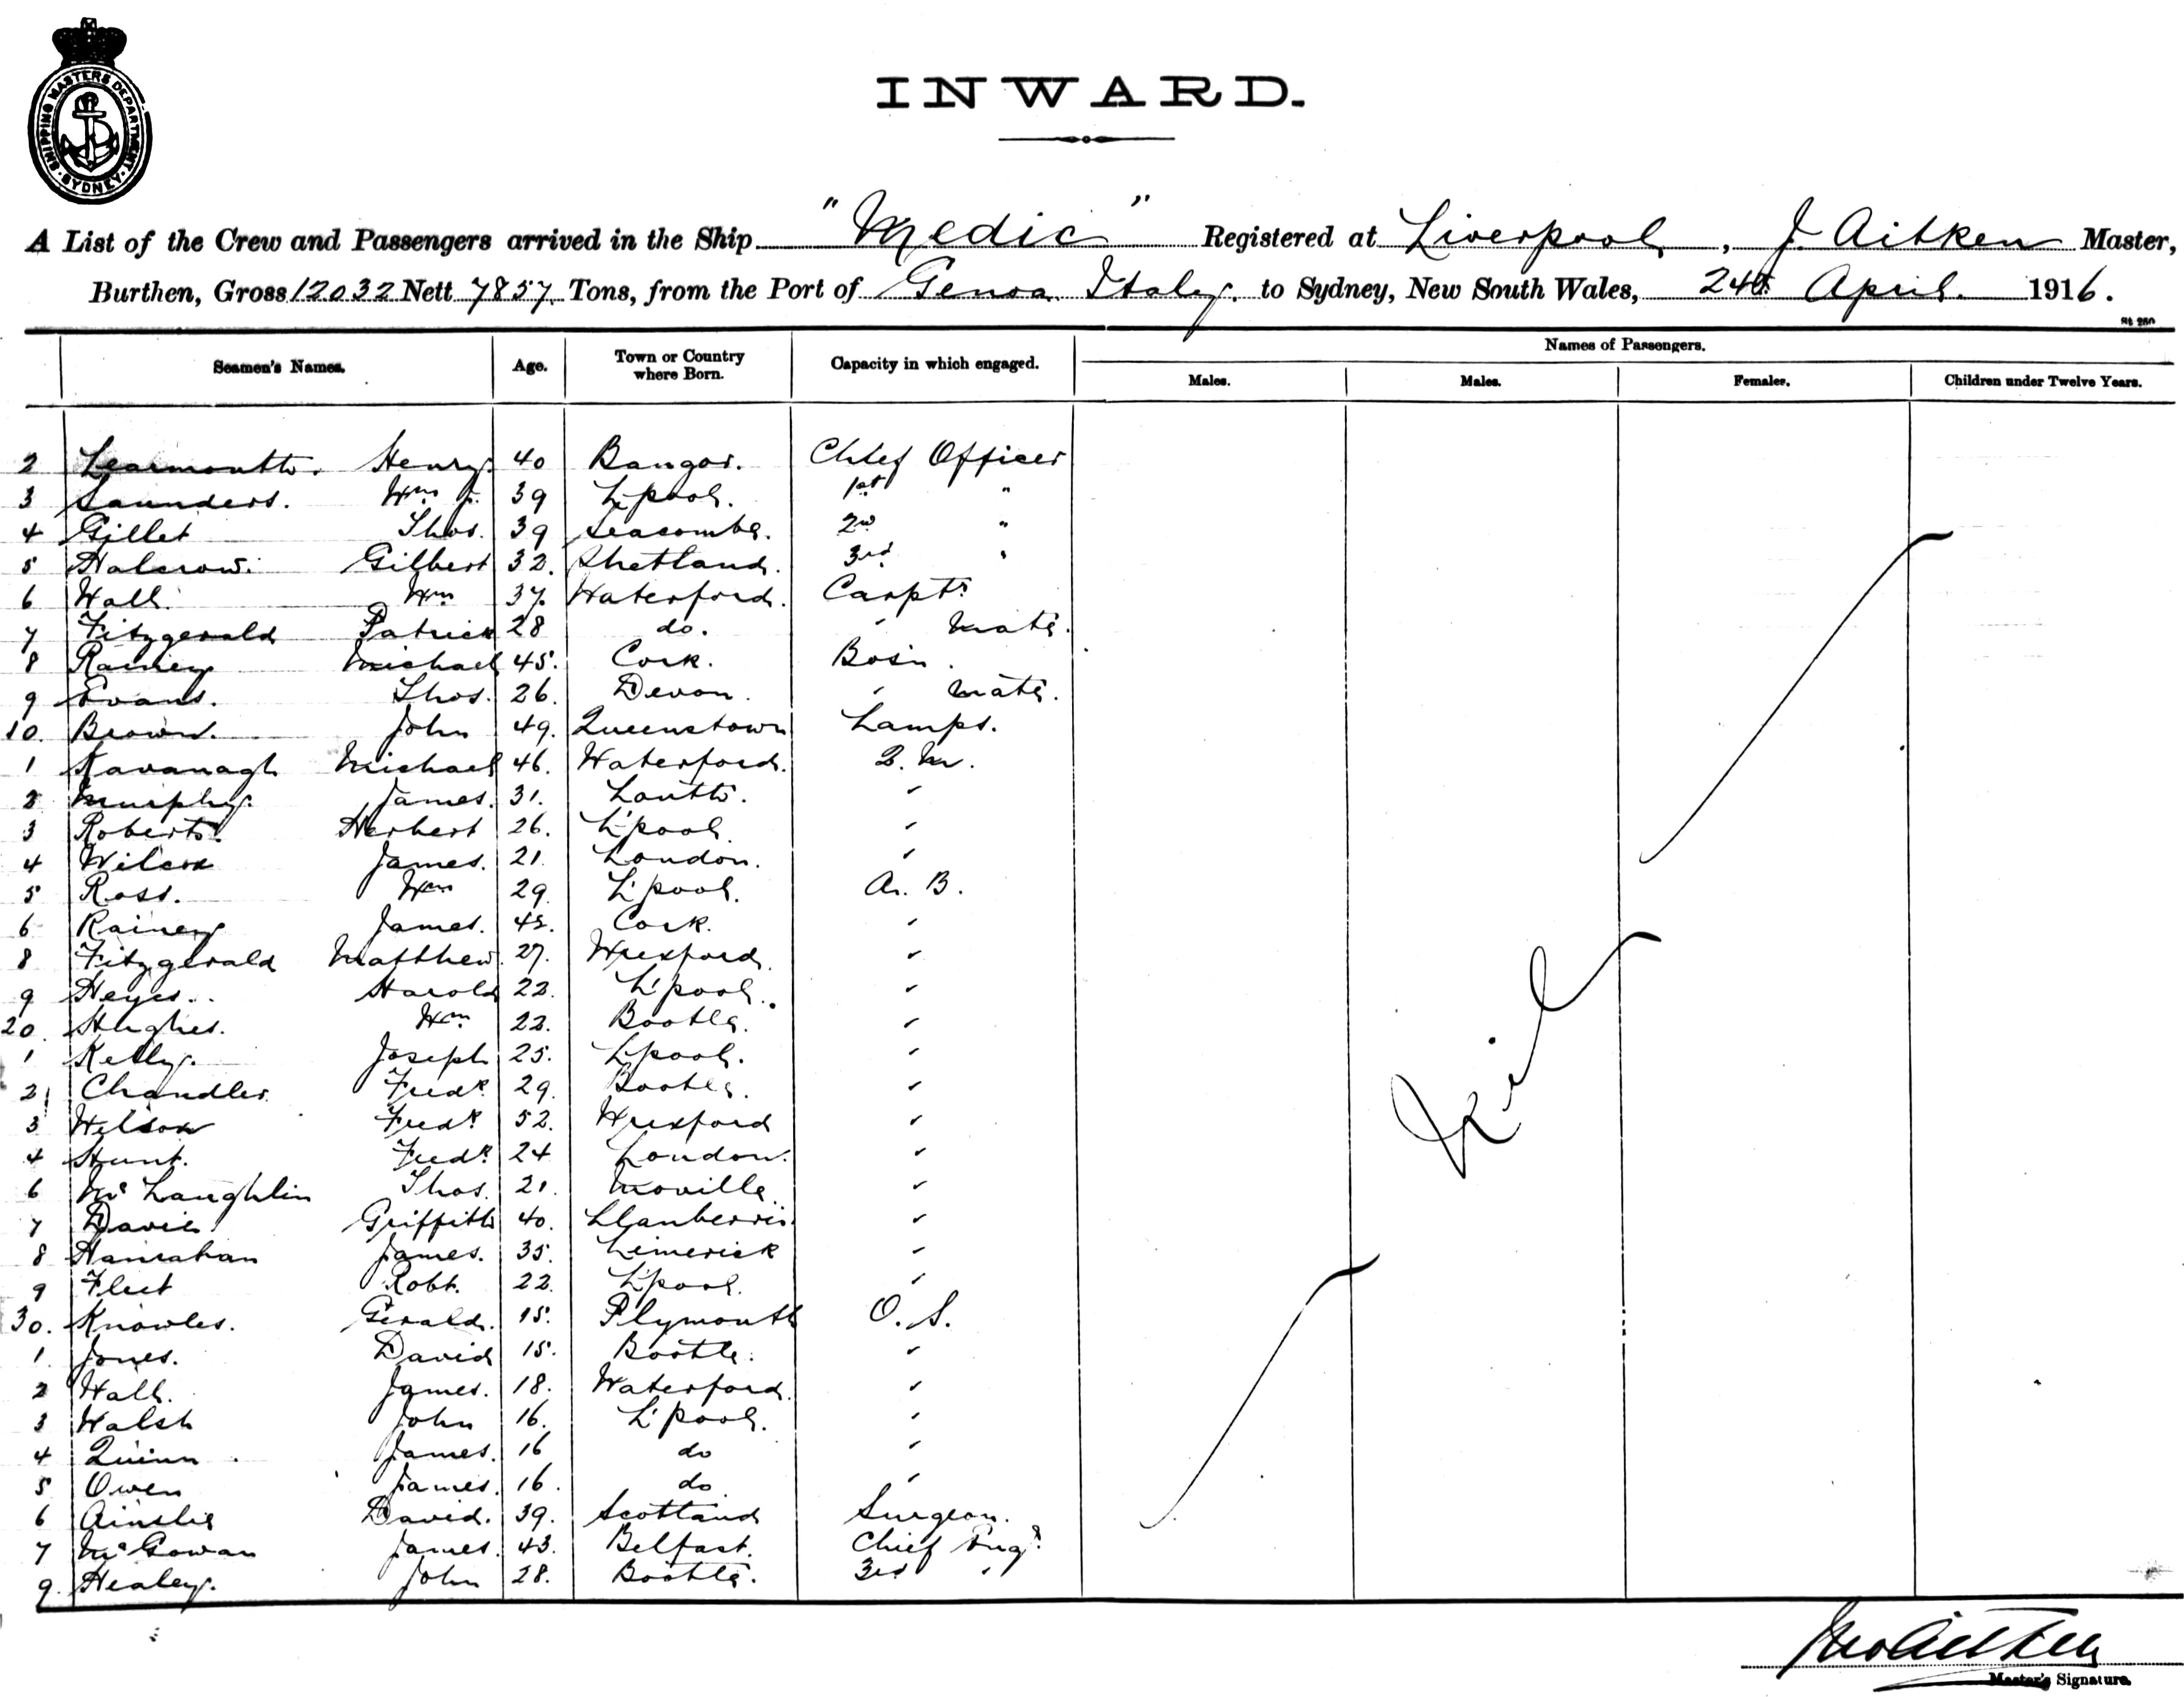 SHIPPING MASTERS DEPARTMENT · SYDNEY ·
INWARD.
A List of the Crew and Passengers arrived in the Ship "Medic" Registered at Liverpool, J. Aitken Master,
Burthen, Gross 12032 Nett 7857 Tons, from the Port of Genoa Italy. to Sydney, New South Wales, 24th April. 1916.
Names of Passengers.
Seamen's Names. Age. Town or Country where Born. Capacity in which engaged. Males. Males. Females. Children under Twelve Years.
2 Learmonth. Henry. 40 Bangor. Chief Officer
3 Saunders. Wm J. 39 L'pool. 1st "
4 Gillet Thos. 39 Seacombe. 2nd "
5 Halcrow. Gilbert 32. Shetland. 3rd "
6 Wall. Wm 37. Waterford. Carptr
7 Fitzgerald Patrick 28 do. " Mate.
8 Rainey Michael 45. Cork. Bosn.
9 Evans. Thos. 26. Devon. " Mate.
10. Brown. John 49. Queenstown Lamps.
1 Kavanagh Michael 46. Waterford. Q. M.
2 Murphy. James. 31. Louth. "
3 Roberts. Herbert 26. L'pool. "
4 Wilcox James. 21. London. "
5 Ross. Wm 29. L'pool. A. B.
6 Rainey James. 42. Cork. "
8 Fitzgerald Matthew. 27. Wexford. "
9 Heyes. Harold 22. L'pool. "
20. Hughes. Wm 22. Bootle. "
1 Kelly. Joseph 25. L'pool. "
2 Chandler Fredk 29. Bootle. "
3 Wilson Fredk 52. Wexford "
4 Hunt. Fredk 24 London. "
6 McLaughlin Thos. 21. Moville. "
7 Davies Griffith 40. Llanberris "
8 Hanrahan James. 35. Limerick "
9 Fleet Robt. 22. L'pool. "
30. Knowles. Gerald. 15. Plymouth O. S.
1. Jones. David 15. Bootle. "
2 Wall. James. 18. Waterford. "
3 Walsh John 16. L'pool. "
4 Quinn James. 16 do "
5 Owen James. 16. do. "
6 Ainslie David. 39. Scotland Surgeon.
7 McGowan James. 43. Belfast. Chief Engr
9. Healey. John 28. Bootle. 3rd "
Nil
Jno Aitken
Master's Signature.